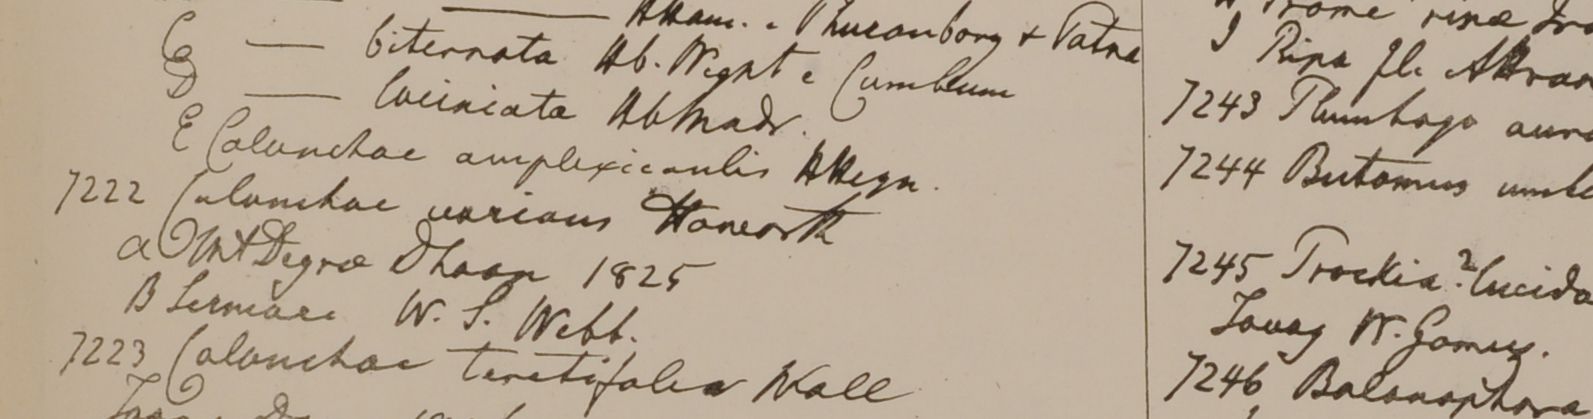 HHam. e & Patna
C — biternata Hb. Wight e Cumbum
D — laciniata HbMadr.
E Calanchoe amplexicaulis HHeyn.
7222 Calanchoe varians Haworth
a Mt Degree Dhoon 1825
B Sermare W. S. Webb.
7223 Calanchoe teretifolia Wall
Ripa fl.
7243 Plumbago
7244 Butomus
7245 ? lucida
Tavoy W. Gomez.
7246 Balanophora